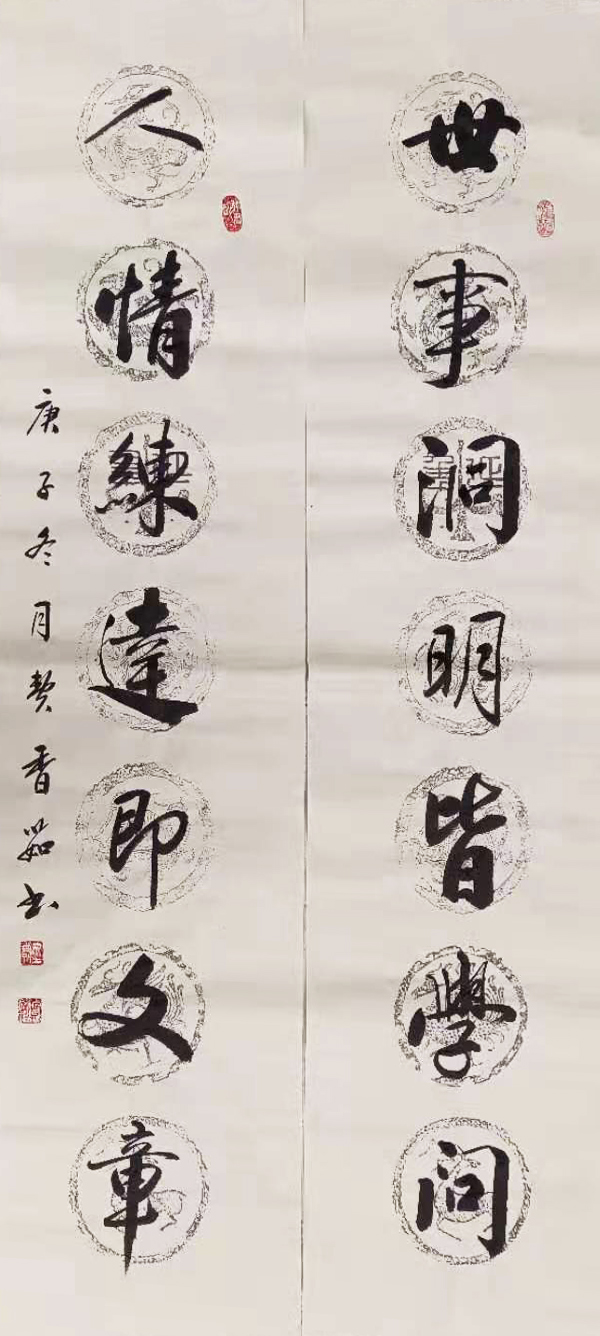 世事洞明皆學問
人情練達即文章
庚子冬月樊香茹书